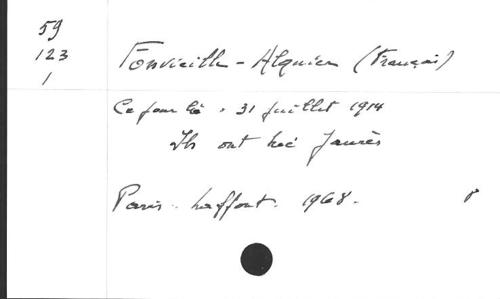 59
123
1
Fonvieille-Alquier (François)
Ce jour là : 31 juillet 1914
Ils ont tué Jaurès
Paris. Laffont. 1968.
8